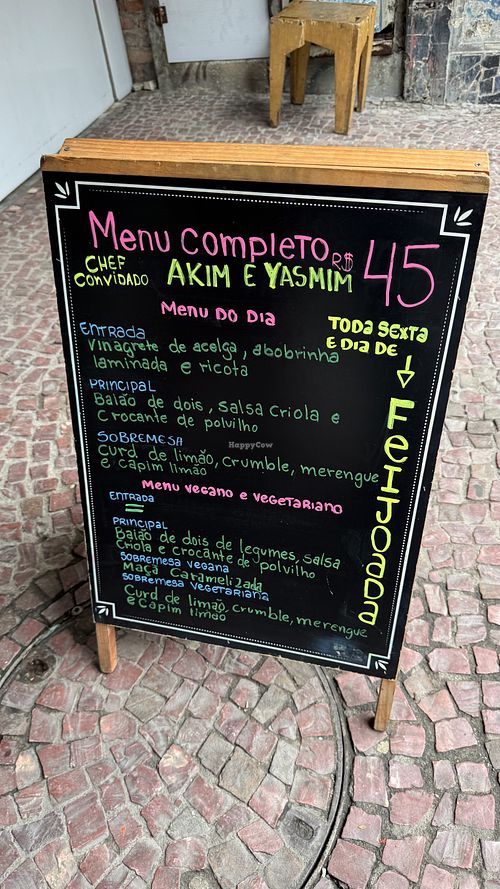 Menu completo R$ 45
CHEF CONVIDADO AKIM E YASMIM
Menu do dia
TODA SEXTA
E DIA DE
FEIJOADA
ENTRADA
Vinagrete de acelga, abobrinha
laminada e ricota
PRINCIPAL
Baião de dois, salsa criola e
crocante de polvilho
SOBREMESA
Curd de limão, crumble, merengue
e capim limão
Menu vegano e vegetariano
ENTRADA
=
PRINCIPAL
Baião de dois de legumes, salsa
criola e crocante de polvilho
SOBREMESA VEGANA
Maçã Caramelizada
SOBREMESA VEGETARIANA
Curd de limão, crumble, merengue
e capim limão
HappyCow